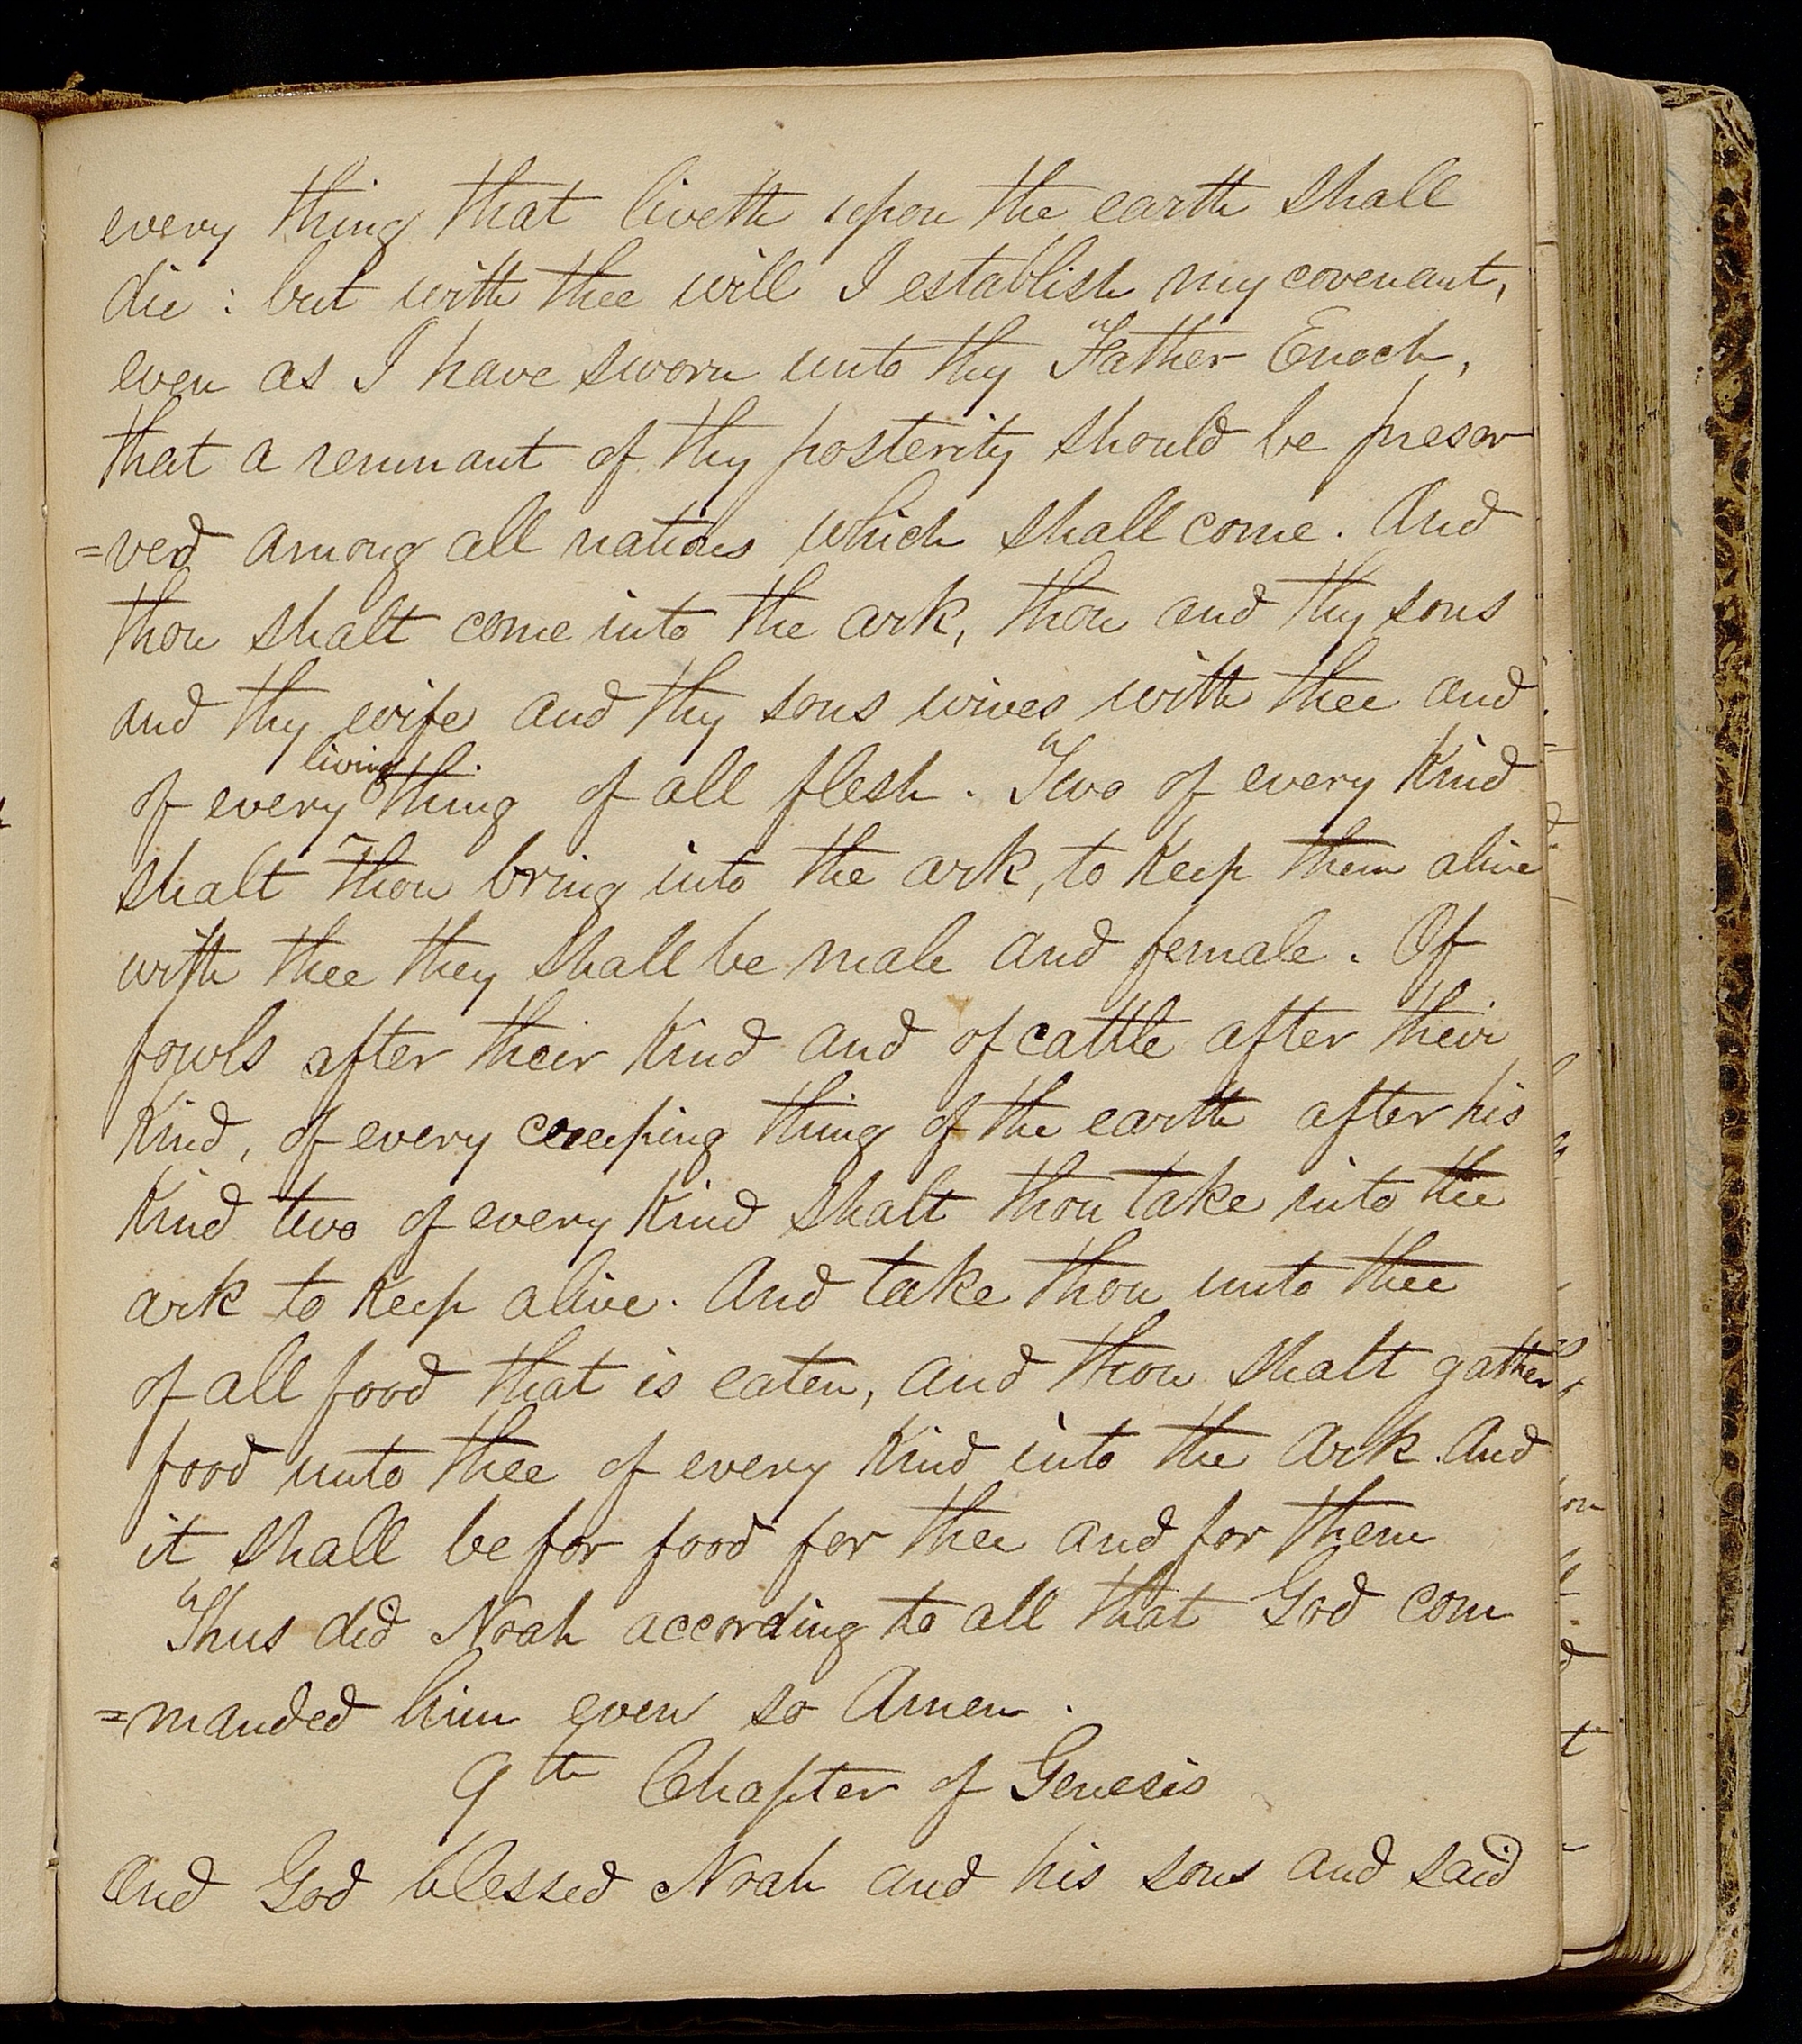 every thing that liveth upon the earth shall
die : but with thee will I establish my covenant,
even as I have sworn unto thy Father Enoch,
that a remnant of thy posterity should be preser
=ved among all nations which shall come. And
thou shalt come into the ark, thou and thy sons
and thy wife and thy sons wives with thee and
living
of every thing of all flesh. Two of every Kind
shalt thou bring into the ark, to Keep them alive
with thee they shall be male and female. Of
fowls after their Kind and of cattle after their
Kind, of every creeping thing of the earth after his
Kind two of every Kind shalt thou take into the
ark to Keep alive. And take thou unto thee
of all food that is eaten, and thou shalt gather
food unto thee of every Kind into the Ark. And
it shall be for food for thee and for them
Thus did Noah according to all that God com
=manded him even so Amen.
9th Chapter of Genesis
And God blessed Noah and his sons and said